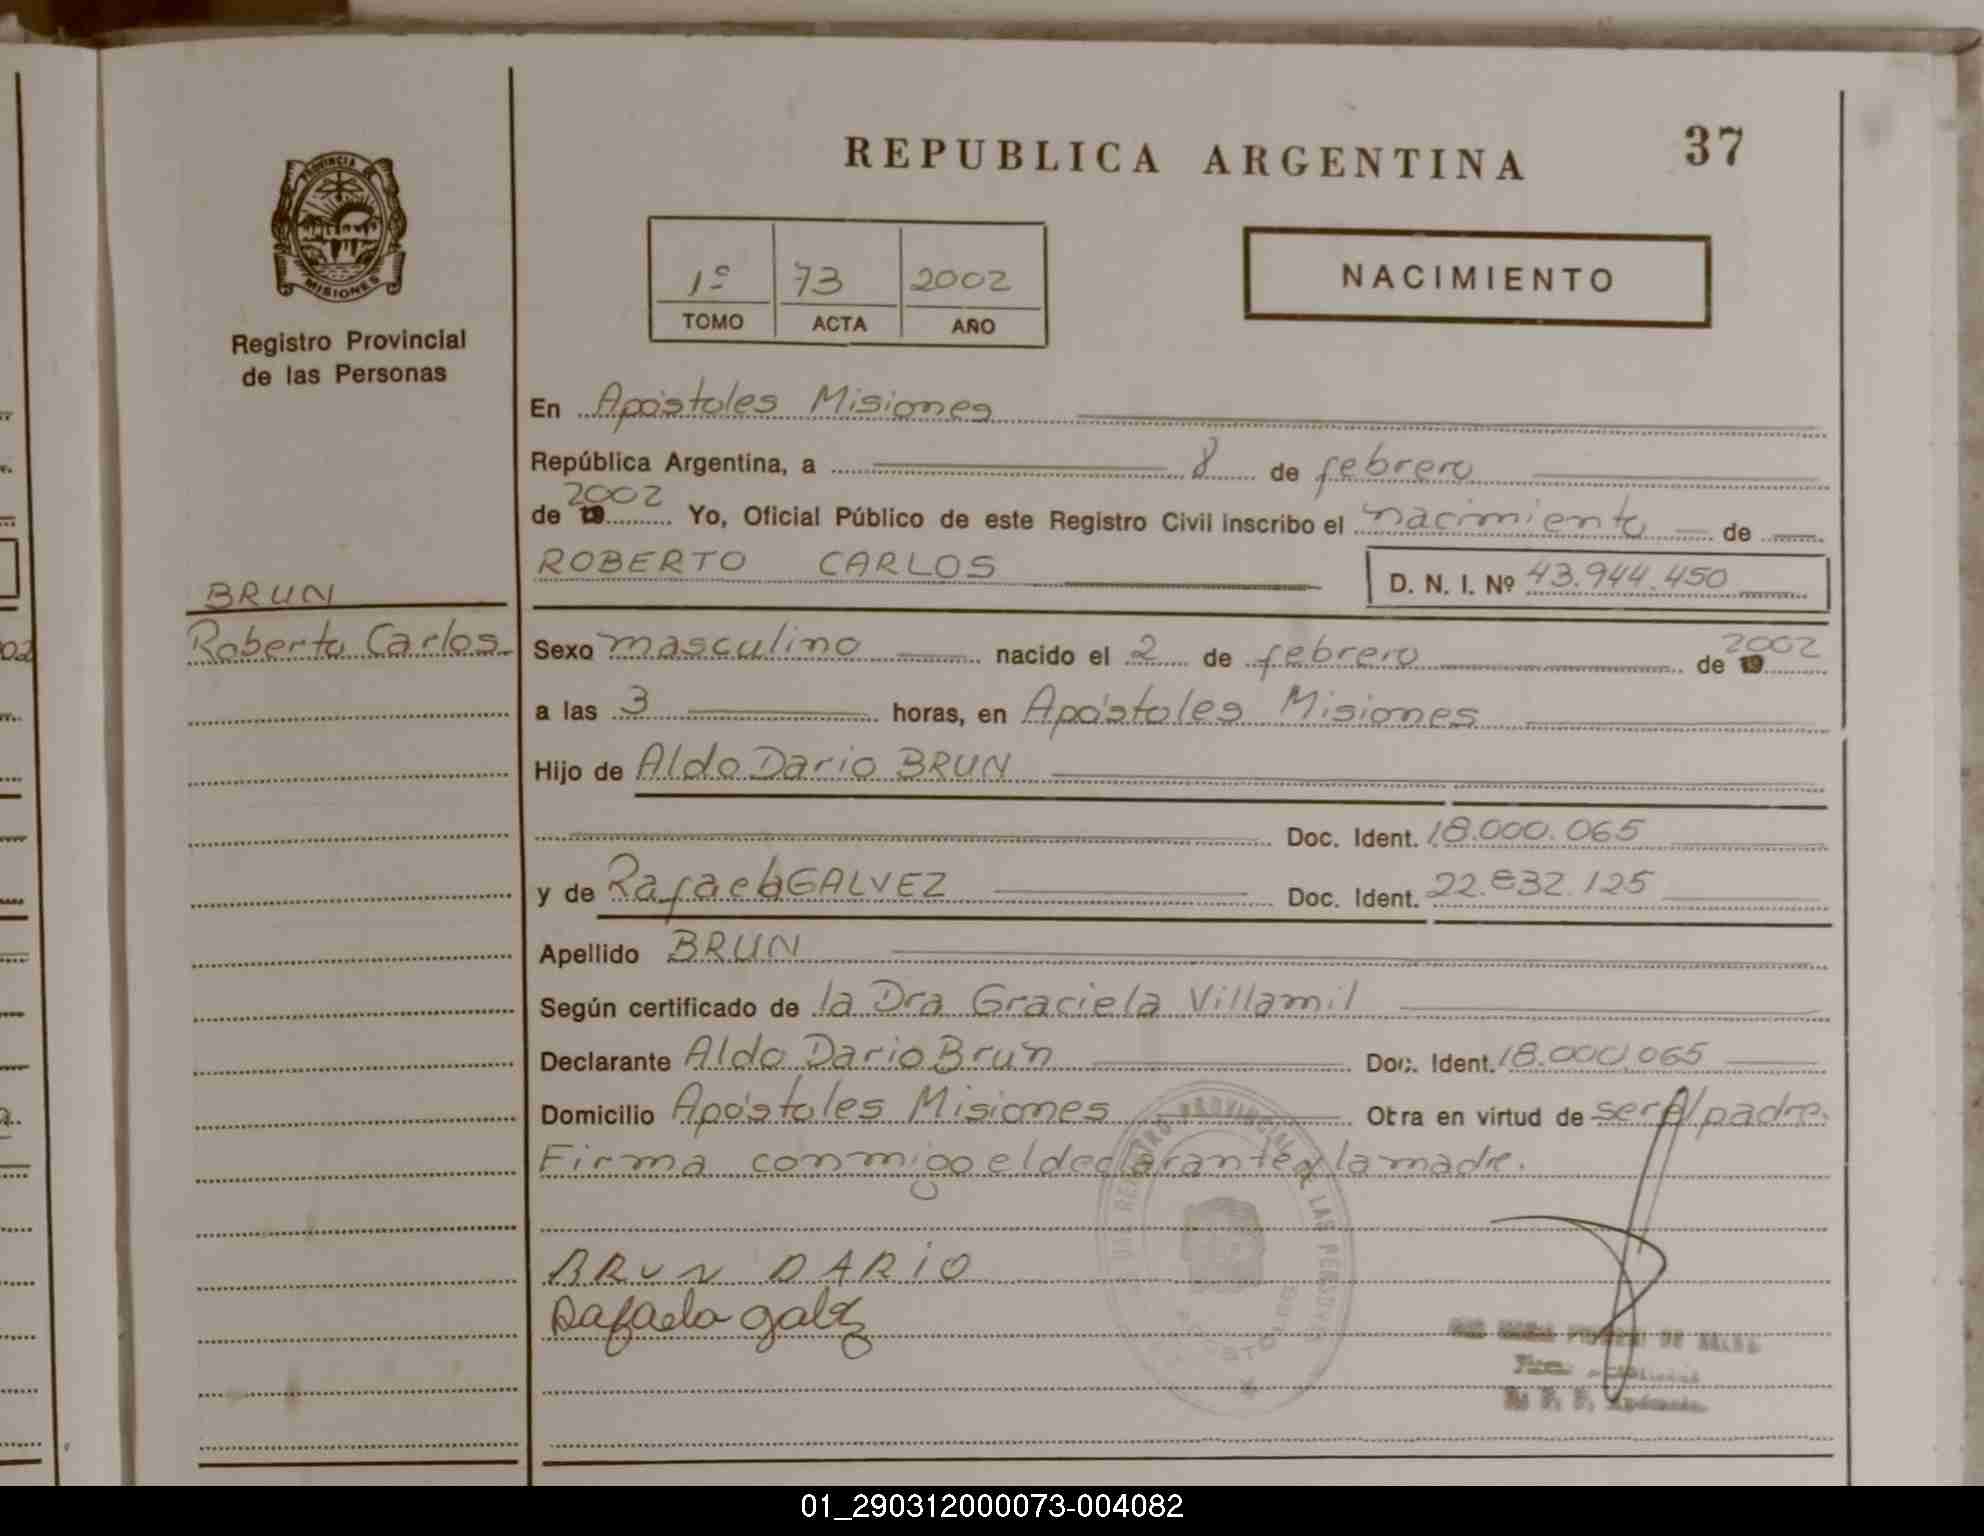 REPUBLICA ARGENTINA
37
PROVINCIA
MISIONES
Registro Provincial
de las Personas
1º 73 2002
TOMO ACTA AÑO
NACIMIENTO
En Apóstoles Misiones
República Argentina, a 8 de febrero
de 19 2002 Yo, Oficial Público de este Registro Civil inscribo el nacimiento de
ROBERTO CARLOS D. N. I. Nº 43.944.450
BRUN
Roberto Carlos
Sexo masculino nacido el 2 de febrero de 19 2002
a las 3 horas, en Apóstoles Misiones
Hijo de Aldo Dario BRUN
Doc. Ident. 18.000.065
y de Rafaela GALVEZ Doc. Ident. 22.832.125
Apellido BRUN
Según certificado de la Dra Graciela Villamil
Declarante Aldo Dario Brun Doc. Ident. 18.000.065
Domicilio Apóstoles Misiones Obra en virtud de ser el padre.
Firma conmigo el declarante y la madre.
BRUN DARIO
Rafaela galvz
REGISTRO PROVINCIAL DE LAS PERSONAS
01_290312000073-004082